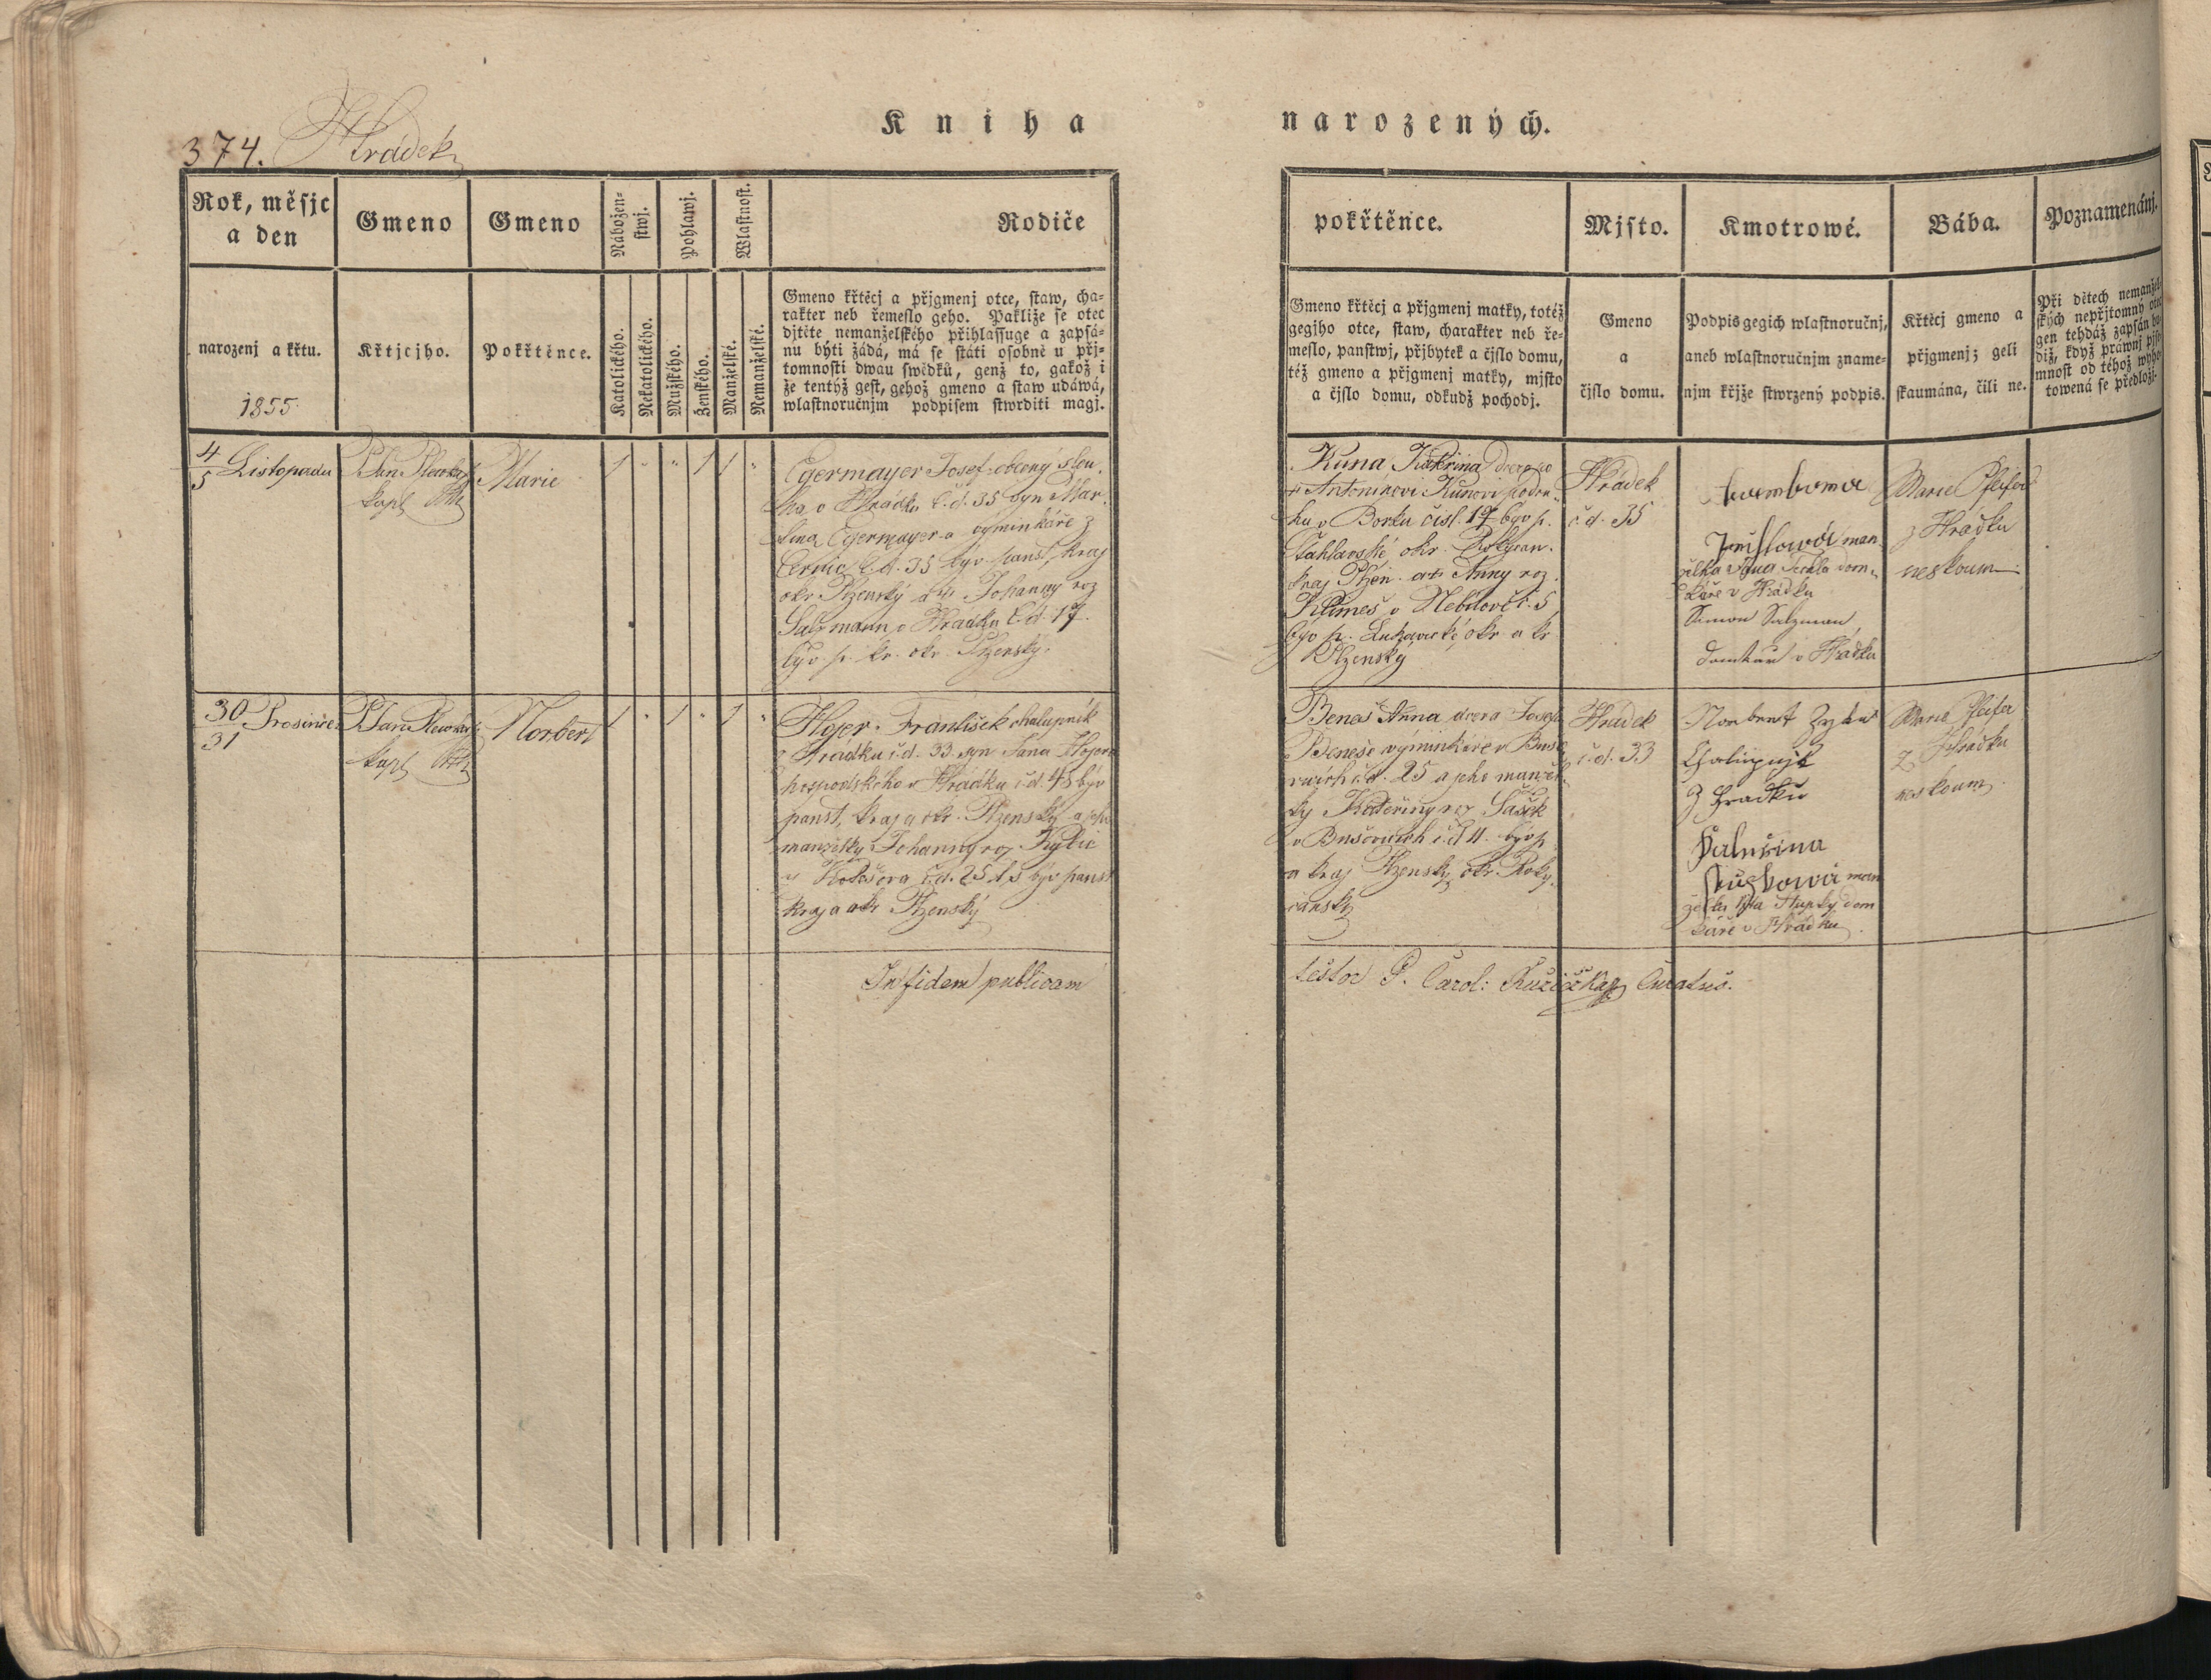 374. Hrádek
Kniha narozených.
Rok, měsjc
a den
Gmeno
Gmeno
Nábožen-
stwj.
Pohlawj.
Wlastnost.
Rodiče
pokřtěnce.
Mjsto.
Kmotrowé.
Bába.
Poznamenánj.
narozenj a křtu.
1855
Křtjcjho.
Pokřtěnce.
Katolického.
Nekatolického.
Mužského.
Ženského.
Manželské.
Nemanželské.
Gmeno křtěcj a přjgmenj otce, staw, cha-
rakter neb řemeslo geho. Pakliže se otec
djtěte nemanželského přihlassuge a zapsá-
nu býti žádá, má se státi osobně u přj-
tomnosti dwau swědků, genž to, gakož i
že tentýž gest, gehož gmeno a staw udáwá,
wlastnoručnjm podpisem stwrditi magj.
Gmeno křtěcj a přjgmenj matky, totéž
gegjho otce, staw, charakter neb ře-
meslo, panstwj, přjbytek a čjslo domu,
též gmeno a přjgmenj matky, mjsto
a čjslo domu, odkudž pochodj.
Gmeno
a
čjslo domu.
Podpis gegich wlastnoručnj,
aneb wlastnoručnjm zname-
njm křjže stwrzený podpis.
Křtěcj gmeno a
přjgmenj; geli
skaumána, čili ne.
Při dětech nemanžel-
ských nepřjtomný otec
gen tehdáž zapsán bu-
diž, když práwnj pjse-
mnost od téhož wyho-
towená se předložj.
4
5 Listopadu
kapl
Marie
1 " " 1 1 "
Egermayer Josef obecný slou-
ha v Hrádku č.d. 35 syn Mar-
tina Egermayer a výminkáře z
č.d. 35 býv. panst, kraj
okr Plzenský a Johanny roz
Salzmann v Hrádku č.d. 17.
býv. p. kr. okr. Plzenský.
Kuna, Kateřina dcera po
† Antonínovi Kunovi podru-
hu v Borku čísl. 17 býv p.
Šťáhlavské okr. Rokycan.
kraj Plzeň. a Anny roz.
Klimeš v Nebílově č. 5
býv p. okr a kr
Plzenský
Hrádek
č.d. 35
man
želka dom-
káře v Hrádku
Simon Salzman
domkář v Hrádku
Marie Pfeifer
z Hrádku
neskoum
30
31 Prosince
kapl
Norbert
1 " 1 " 1 "
Hojer František chalupník
v Hrádku č.d. 33. syn Jana Hojera
hospodského v Hrádku č.d. 45 býv
panst, kraj a okr. Plzenský a jeho
manželky Johanny roz.
z č.d. 25 býv panst
kraj a okr Plzenský
Beneš Anna dcera Josefa
Beneše výminkáře v Bušo-
vicích č.d. 25 a jeho manžel-
ky Kateřiny roz Šašek
v Bušovicích č.d 4. býv p
a kraj Plzenský okr. Roky-
canský
Hrádek
č.d. 33
Norbert
z Hradku
man
želka dom
káře v Hrádku
Marie Pfeifer
z Hrádku
neskoum.
In fidem publicam
testor P. Carol: Růžička Curatus.